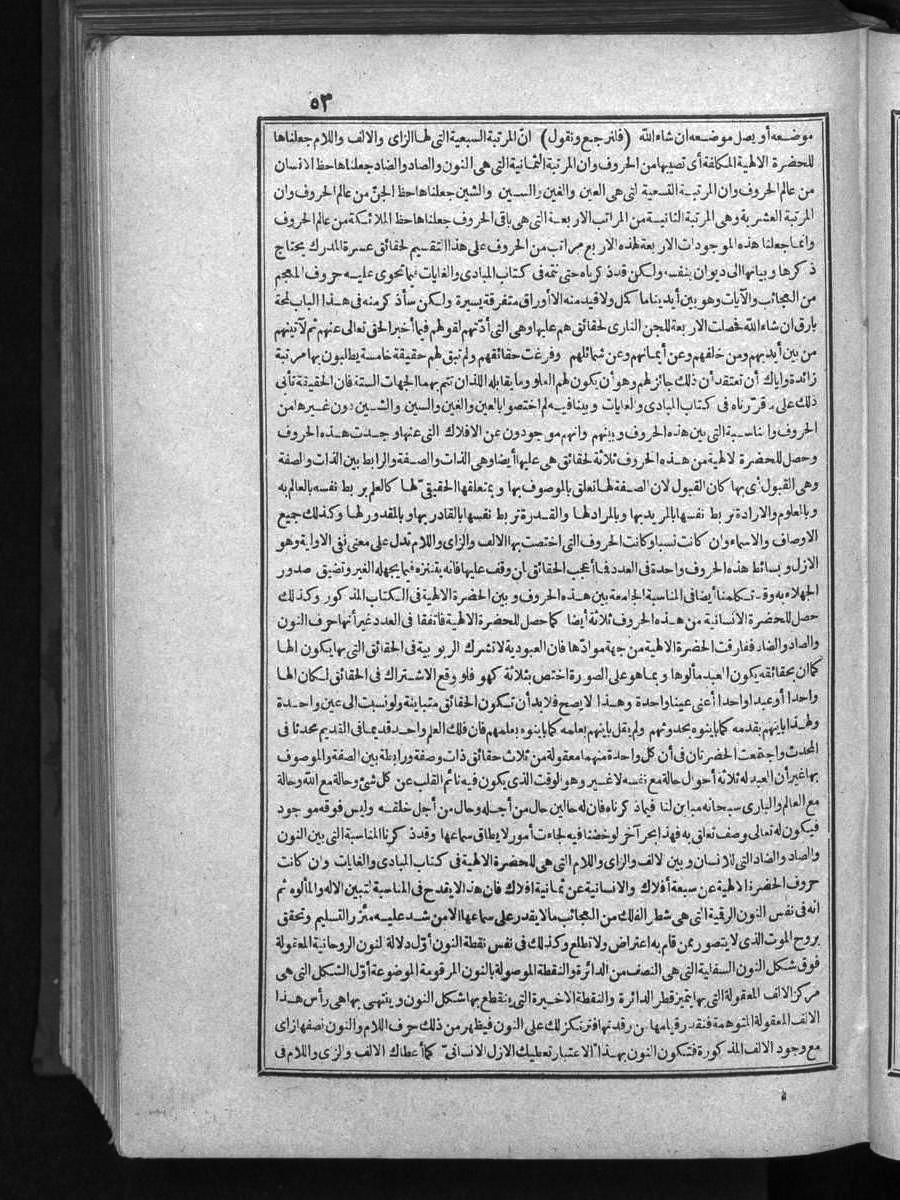 ٥٣
موضعه أو يصل موضعه ان شاء الله (فلنرجع ونقول) ان المرتبة السبعية التى لها الزاى والالف واللام جعلناها
للحضرة الالهية المكلفة أى نصيبها من الحروف وان المرتبة الثمانية التى هى النون والصاد والضاد جعلناها حظ الانسان
من عالم الحروف وان المرتبة التسعية التى هى العين والغين والسين والشين جعلناها حظ الجن من عالم الحروف وان
المرتبة العشرية وهى المرتبة الثانية من المراتب الاربعة التى هى باقى الحروف جعلناها حظ الملائكة من عالم الحروف
وانما جعلنا هذه الموجودات الاربعة لهذه الاربع مراتب من الحروف على هذا التقسيم لحقائق عسرة المدرك يحتاج
ذكرها وبيانها الى ديوان بنفسه ولكن قد ذكرناه حتى نتمه فى كتاب المبادى والغايات فيما تحوى عليه حروف المعجم
من العجائب والآيات وهو بين أيدينا ما كمل ولا قيد منه الا أوراق متفرقة يسيرة ولكن سأذكر منه فى هذا الباب لمحة
بارق ان شاء الله فحصلت الاربعة للجن النارى لحقائق هم عليها وهى التى أدتهم لقولهم فيما أخبر الحق تعالى عنهم ثم لآتينهم
من بين أيديهم ومن خلفهم وعن أيمانهم وعن شمائلهم وفرغت حقائقهم ولم تبق لهم حقيقة خامسة يطلبون بها مرتبة
زائدة واياك أن تعتقد أن ذلك جائز لهم وهو أن يكون لهم العلو وما يقابله اللذان تتم بهما الجهات الستة فان الحقيقة تأبى
ذلك على ما قررناه فى كتاب المبادى والغايات وبينا فيه لم اختصوا بالعين والغين والسين والشين دون غيرها من
الحروف والمناسبة التى بين هذه الحروف وبينهم وانهم موجودون عن الافلاك التى عنها وجدت هذه الحروف
وحصل للحضرة الالهية من هذه الحروف ثلاثة لحقائق هى عليها أيضا وهى الذات والصفة والرابط بين الذات والصفة
وهى القبول أى بها كان القبول لان الصفة لها تعلق بالموصوف بها وبمتعلقها الحقيقى لها كالعلم يربط نفسه بالعالم به
وبالمعلوم والارادة تربط نفسها بالمريد بها وبالمراد لها والقدرة تربط نفسها بالقادر بها وبالمقدور لها وكذلك جميع
الاوصاف والاسماء وان كانت نسبا وكانت الحروف التى اختصت بها الالف والزاى واللام تدل على معنى نفى الاولية وهو
الازل وبسائط هذه الحروف واحدة فى العدد فما أعجب الحقائق لمن وقف عليها فانه يتنزه فيما يجهله الغير وتضيق صدور
الجهلاء به وقد تكلمنا أيضا فى المناسبة الجامعة بين هذه الحروف وبين الحضرة الالهية فى الكتاب المذكور وكذلك
حصل للحضرة الانسانية من هذه الحروف ثلاثة أيضا كما حصل للحضرة الالهية فاتفقا فى العدد غير أنها حرف النون
والصاد والضاد ففارقت الحضرة الالهية من جهة موادها فان العبودية لا تشرك الربوبية فى الحقائق التى بها يكون الها
كما ان بحقائقه يكون العبد مألوها وبما هو على الصورة اختص بثلاثة كهو فلو وقع الاشتراك فى الحقائق لكان الها
واحدا أو عبدا واحدا أعنى عينا واحدة وهذا لا يصح فلا بد أن تكون الحقائق متباينة ولو نسبت الى عين واحدة
ولهذا باينهم بقدمه كما باينوه بحدوثهم ولم يقل باينهم بعلمه كما باينوه بعلمهم فان فلك العلم واحد قديما فى القديم محدثا فى
المحدث واجتمعت الحضرتان فى أن كل واحدة منهما معقولة من ثلاث حقائق ذات وصفة ورابطة بين الصفة والموصوف
بها غير أن العبد له ثلاثة أحوال حالة مع نفسه لا غير وهو الوقت الذى يكون فيه نائم القلب عن كل شئ وحالة مع الله وحالة
مع العالم والبارى سبحانه مباين لنا فيما ذكرناه فان له حالين حال من أجله وحال من أجل خلقه وليس فوقه موجود
فيكون له تعالى وصف تعلق به فهذا بحر آخر لو خضنا فيه لجاءت أمور لا يطاق سماعها وقد ذكرنا المناسبة التى بين النون
والصاد والضاد التى للانسان وبين الالف والزاى واللام التى هى للحضرة الالهية فى كتاب المبادى والغايات وان كانت
حروف الحضرة الالهية عن سبعة أفلاك والانسانية عن ثمانية افلاك فان هذا لا يقدح فى المناسبة لتبين الاله والمألوه ثم
انه فى نفس النون الرقمية التى هى شطر الفلك من العجائب ما لا يقدر على سماعها الا من شد عليه مئزر التسليم وتحقق
بروح الموت الذى لا يتصور ممن قام به اعتراض ولا تطلع وكذلك فى نفس نقطة النون أول دلالة النون الروحانية المعقولة
فوق شكل النون السفلية التى هى النصف من الدائرة والنقطة الموصولة بالنون المرقومة الموضوعة أول الشكل التى هى
مركز الالف المعقولة التى بها يتميز قطر الدائرة والنقطة الاخيرة التى ينقطع بها شكل النون وينتهى بها هى رأس هذا
الالف المعقولة المتوهمة فنقدر قيامها من رقدتها فترتكز لك على النون فيظهر من ذلك حرف اللام والنون نصفها زاى
مع وجود الالف المذكورة فتكون النون بهذا الاعتبار تعطيك الازل الانسانى كما أعطاك الالف والزاى واللام فى